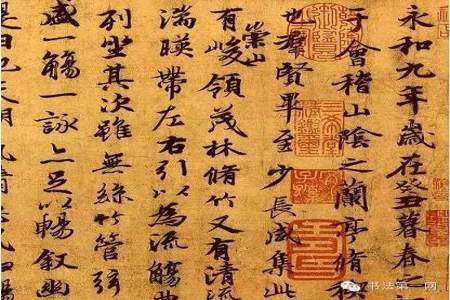 永和九年歲在癸丑暮春之
于會稽山陰之蘭亭脩禊
也羣賢畢至少長咸集此
有崇山峻領茂林脩竹又有清流
湍暎帶左右引以為流觴曲
列坐其次雖無絲竹管弦
盛一觴一詠亦足以暢敘幽
是日也天朗氣清
书法第一网